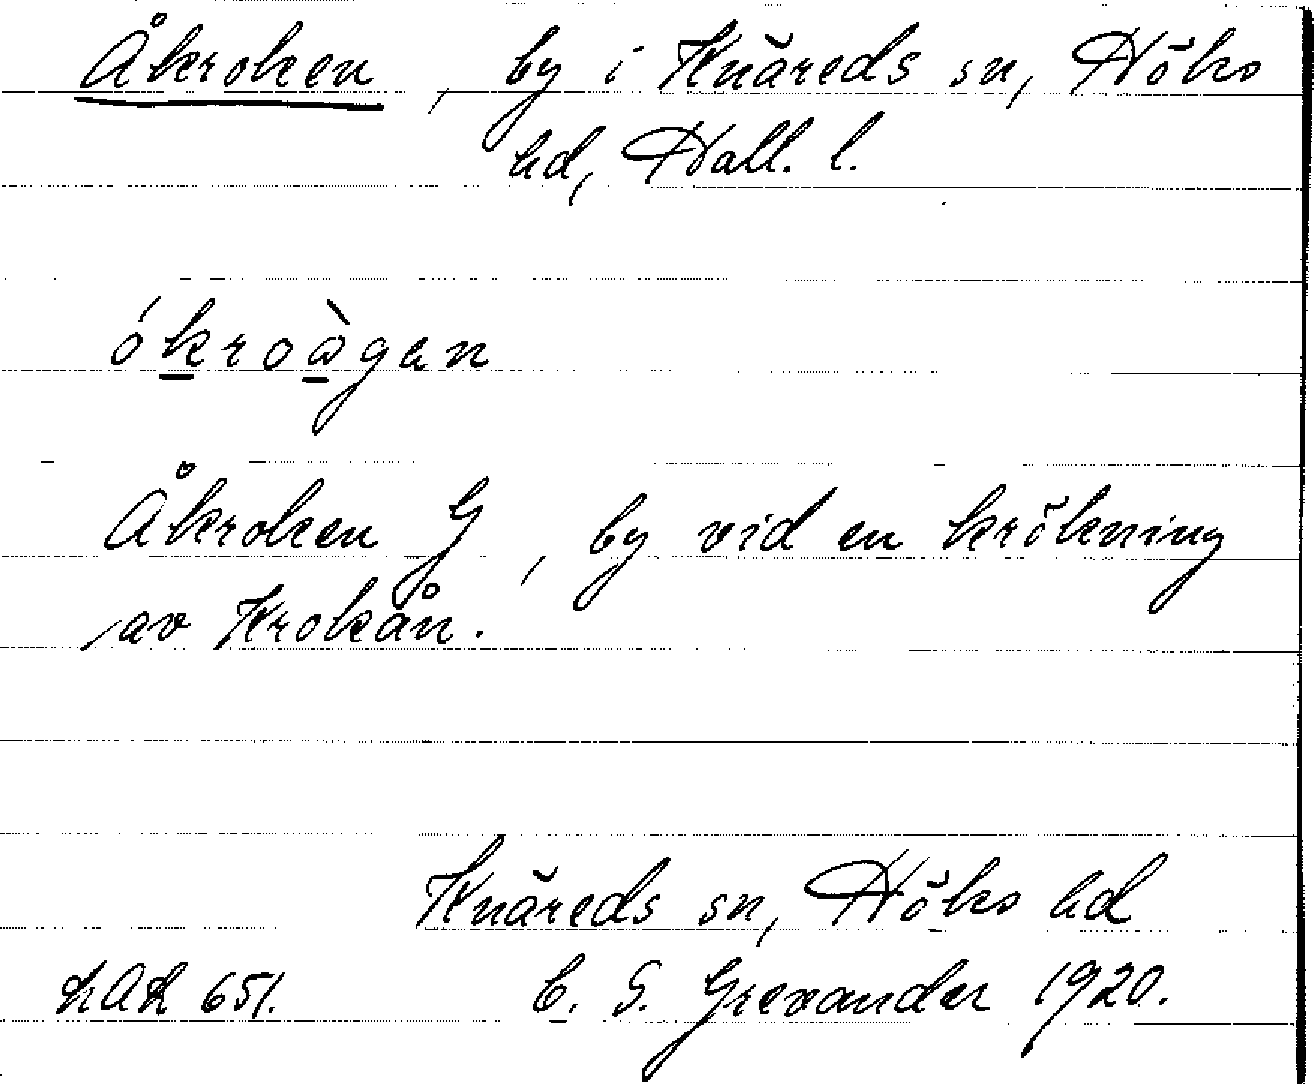 Åkroken, by i Knäreds sn, Höks
hd, Hall. l.
ókroàgan
Åkroken G, by vid en krökning
av Krokån.
Knäreds sn, Höks hd
LAL 651. C. S. Grexander 1920.